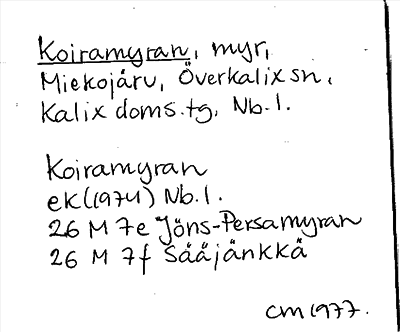 Koiramyran, myr,
Miekojärv, Överkalix sn,
Kalix doms.tg, Nb.l.
Koiramyran
ek(1974) Nb.l.
26 M 7e Jöns-Persamyran
26 M 7f Sååjänkkä
CM 1977.